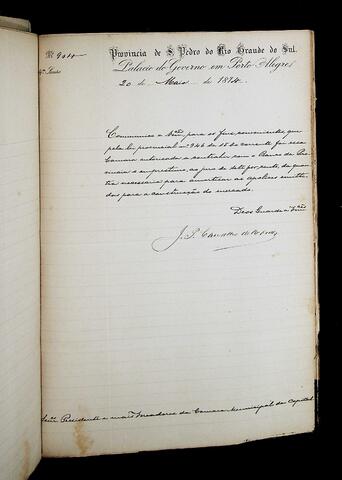 Provincia de S. Pedro do Rio Grande do Sul.
Palacio do Governo em Porto Alegre,
20 de Maio de 1874.
Communico a Vmces para os fins convenientes que
pela lei provincial nº 946 de 15 do corrente foi essa
Camara autorisada a contrahir com o Banco da Provincia
o emprestimo, ao juro de sete por cento, da quantia
necessaria para amortisar as apolices emittidas
para a construcção do mercado.
Deos Guarde a Vmces
Presidente e mais Vereadores da Camara Municipal da Capital